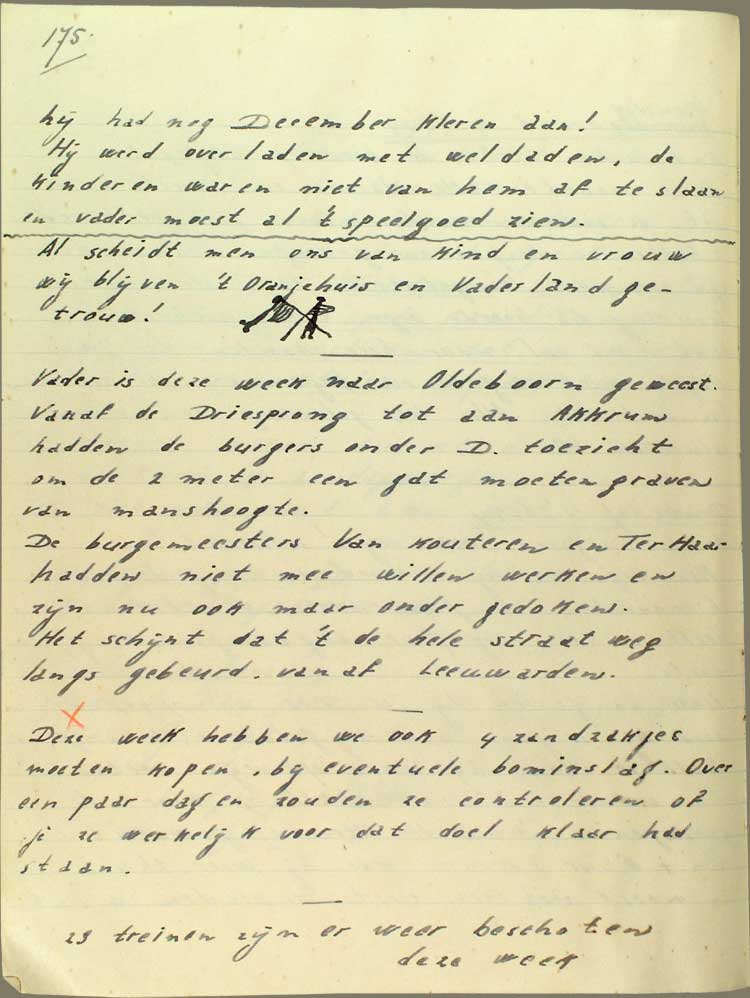 175.
hij had nog December kleren aan!
Hij werd overladen met weldaden, de
kinderen waren niet van hem af te slaan
en vader moest al 't speelgoed zien.
Al scheidt men ons van kind en vrouw
wij blijven 't Oranjehuis en Vaderland ge-
trouw!
Vader is deze week naar Oldeboorn geweest.
Vanaf de Driesprong tot aan Akkrum
hadden de burgers onder D. toezicht
om de 2 meter een gat moeten graven
van manshoogte.
De burgemeesters Van Kouteren en Ter Haar
hadden niet mee willen werken en
zijn nu ook maar ondergedoken.
Het schijnt dat 't de hele straatweg
langs gebeurd. vanaf Leeuwarden.
X
Deze week hebben we ook 4 zandzakjes
moeten kopen, bij eventuele bominslag. Over
een paar dagen zouden ze controleren of
je ze werkelijk voor dat doel klaar had
staan.
23 treinen zijn er weer beschoten
deze week